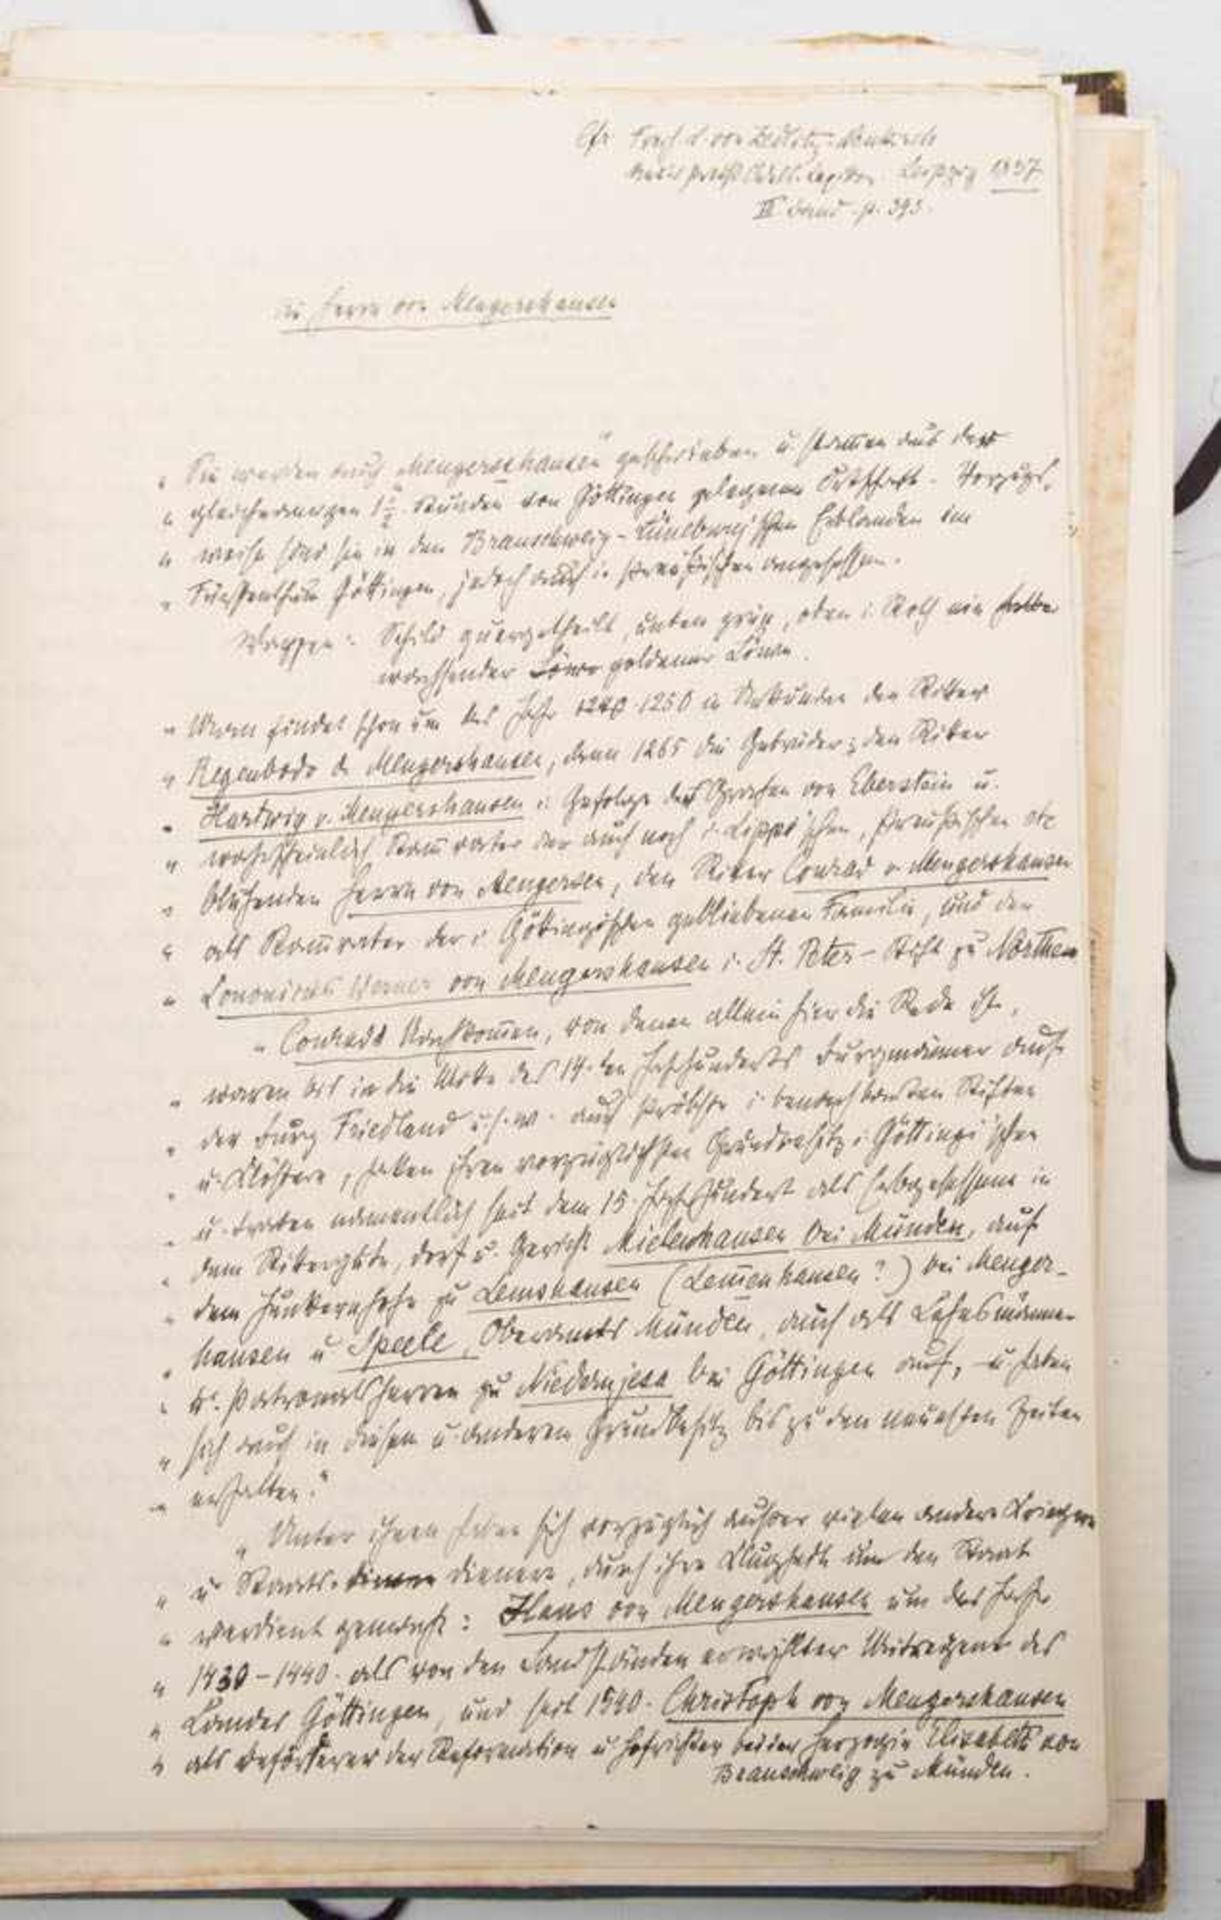 Cfr. Frhr. L. von Zedlitz-Neukirch
Neues preuß. Adels-Lexikon. Leipzig 1837
III Band - p. 393.
Die Herrn von Mengershausen
" Sie werden auch „Mengerschausen" geschrieben u. stammen aus der
" gleichnamigen 1½ Stunden von Göttingen gelegenen Ortschaft. Vorzugs-
" weise sind sie in den Braunschweig-Lüneburg'schen Erblanden im
" Fürstenthum Göttingen, jedoch auch in Preußischen angesessen.
Wappen: Schild quergetheilt, unten grün, oben i. Roth ein halber
wachsender Löwe goldener Löwe.
" Man findet schon um das Jahr 1240-1250 in Urkunden den Ritter
" Regenbodo de Mengershausen, dann 1265 die Gebrüder; den Ritter
" Hartwig v. Mengershausen i. Gefolge des Grafen von Eberstein u.
" wahrscheinlich Stammvater der auch noch i. Lippe'schen, Preußischen etc
" blühenden Herrn von Mengersen, den Ritter Conrad v. Mengershausen
" als Stammvater der i. Göttingischen gebliebenen Familie, und den
" Canonicus Werner von Mengershausen i. St. Peter-Stift zu Nörthen
" Conrads Nachkommen, von denen allein hier die Rede ist,
" waren bis in die Mitte des 14-ten Jahrhunderts Burgmänner auf
" der Burg Friedland u.s.w. auch Pröbste i. benachbarten Stiften
" u. Klöstern, hatten ihren vorzüglichsten Grundbesitz i. Göttingi'schen
" u. traten namentlich seit dem 15. Jahrhundert als Erbgesessene in
" dem Rittergute, Dorf u. Gericht Mielenhausen bei Münden, auf
" dem Junkernhofe zu Lemshausen (Lemenhausen?) bei Menger-
" hausen u. Speele, Oberamts Münden, auch als Lehnsmänner
" u. Patronatsherren zu Niedernjesa bei Göttingen auf, u. haben
" sich auch in diesen u. anderem Grundbesitz bis zu den neuesten Zeiten
" erhalten."
" Unter ihnen haben sich vorzüglich außer vielen andern Kriegern
" u. Staats-dienern dienern, durch ihre Klugheit um den Staat
" verdient gemacht: Hans von Mengershausen um das Jahr
" 1430-1440. als von den Landständen erwählter Mitregent des
" Landes Göttingen, und seit 1540. Christoph von Mengershausen
" als Beförderer der Reformation u. Hofrichter bei der Herzogin Elisabeth von
Braunschweig zu Münden.